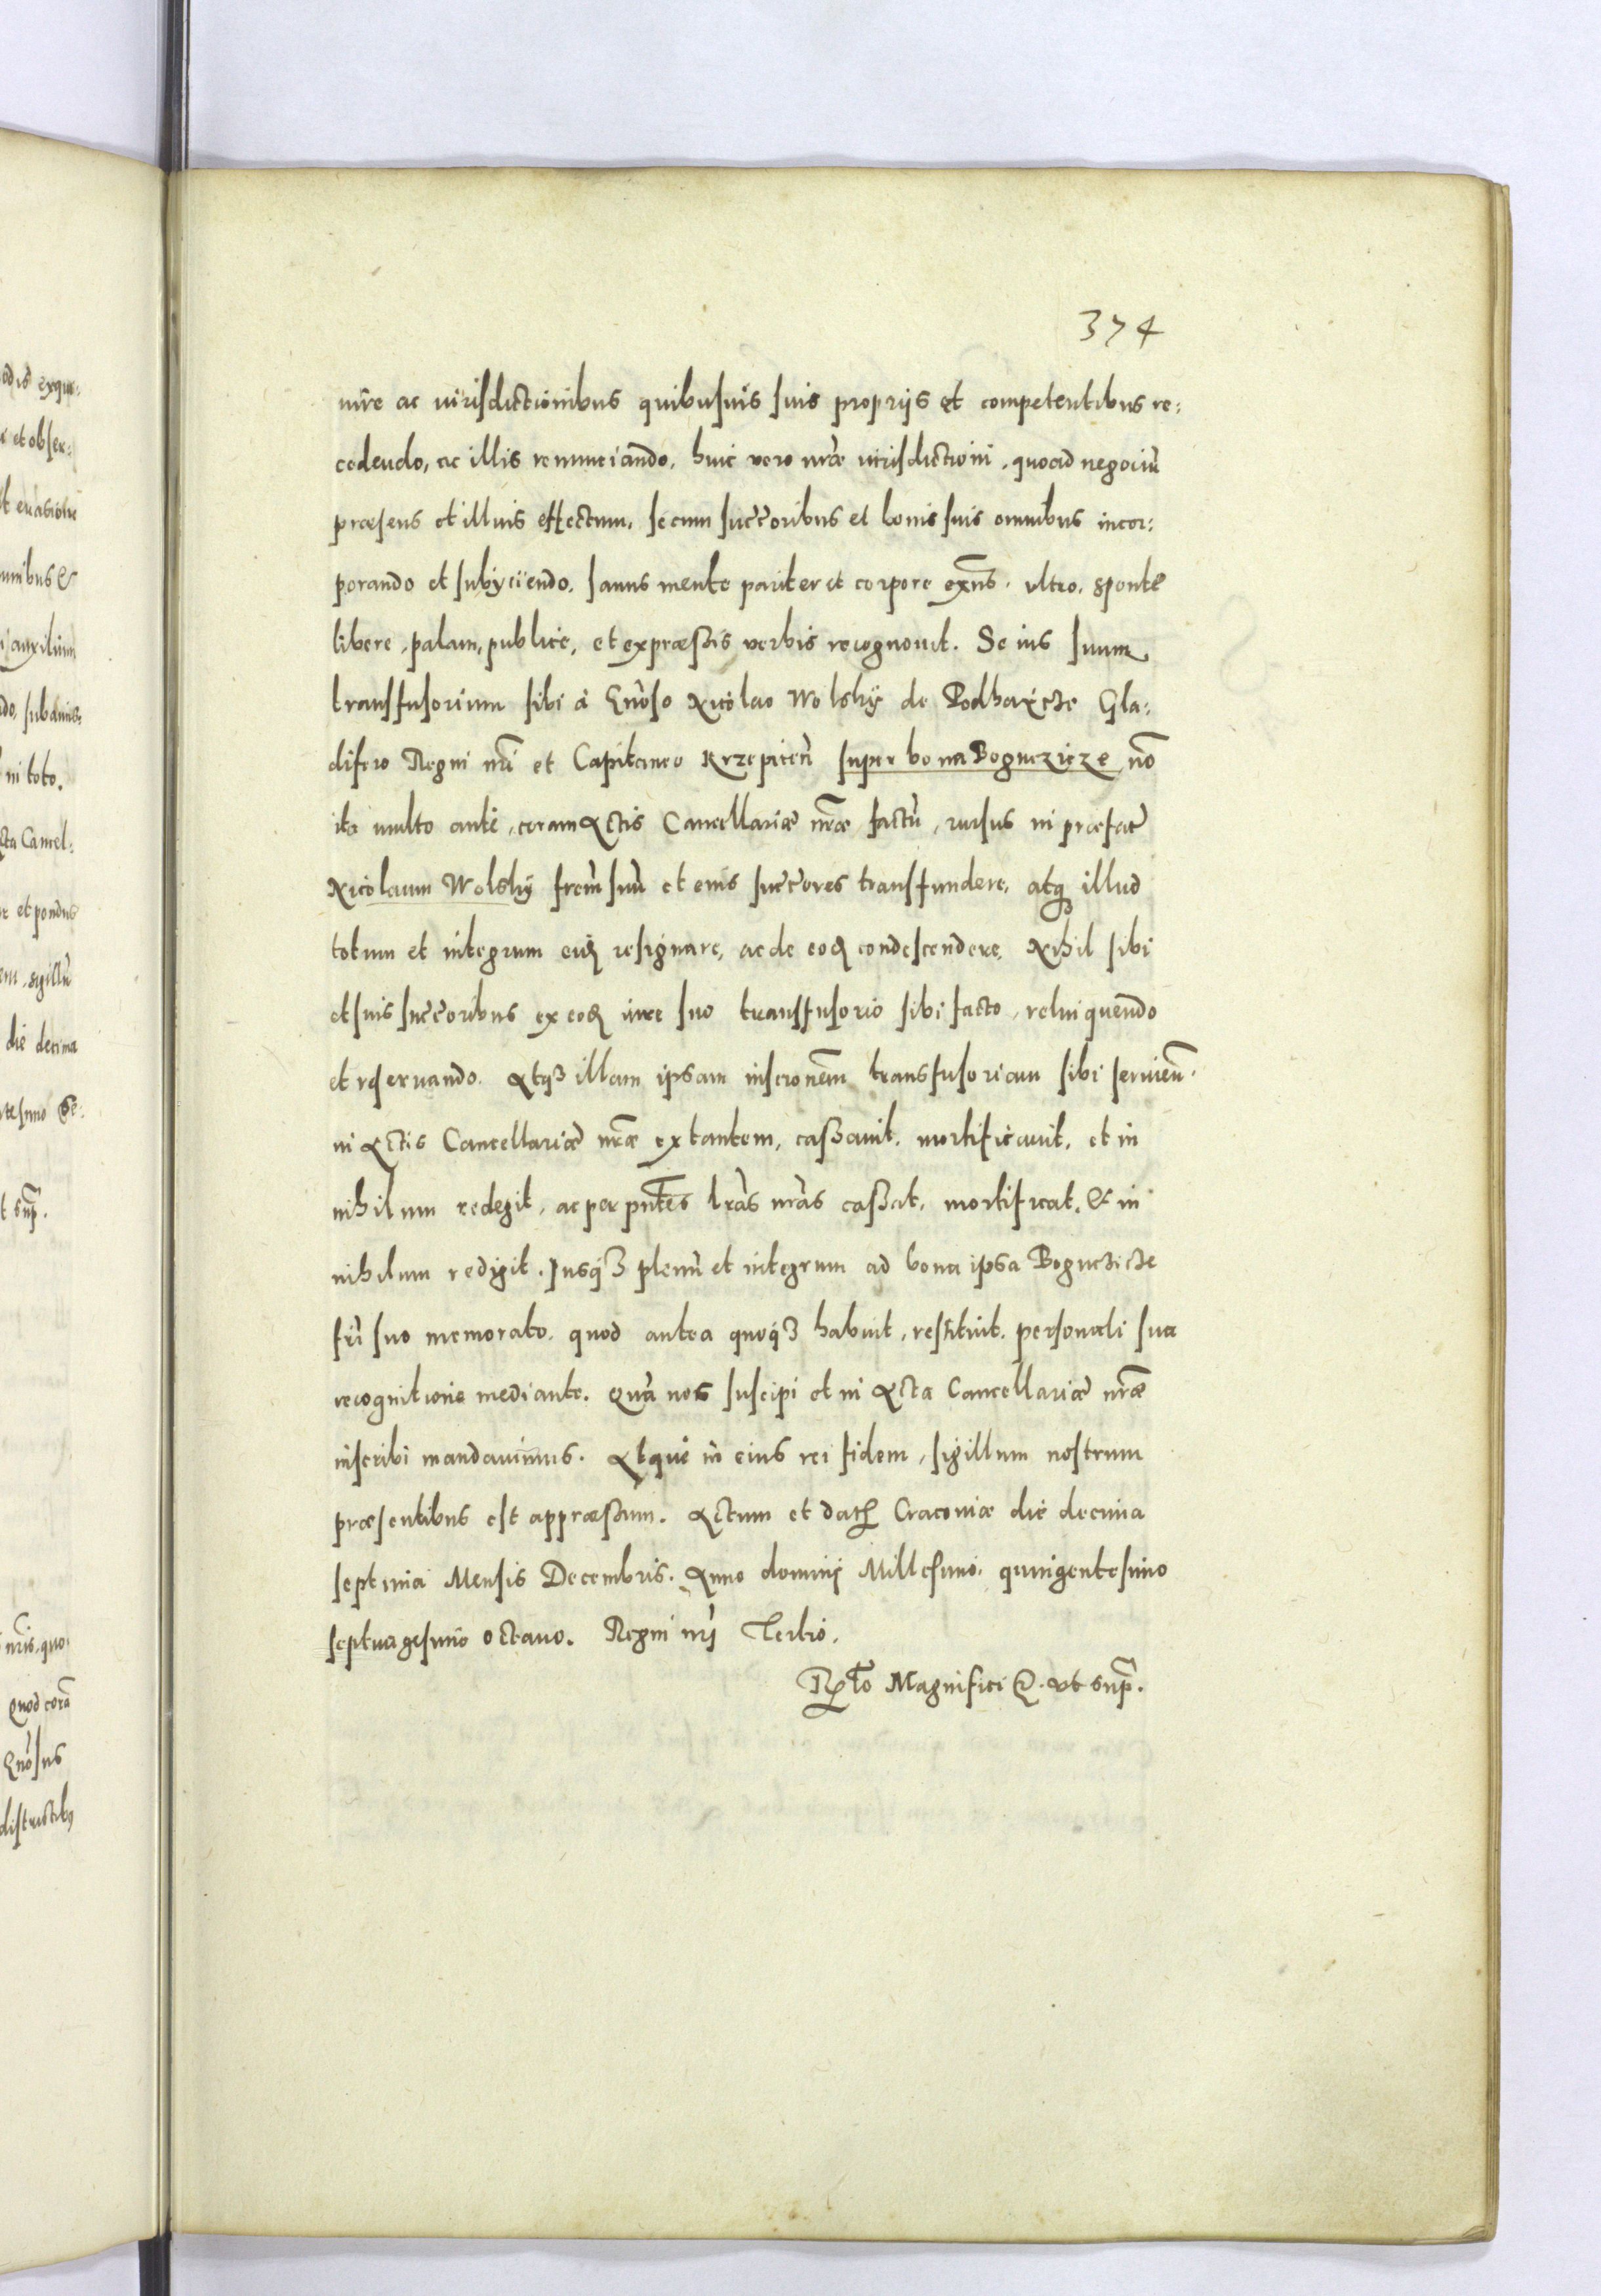 374
iure ac iurisdictionibus quibusuis suis proprijs et competentibus re:
cedendo, ac illis renunciando, huic vero nr̃æ iurisdictioni, quoad negociũ
præsens et illius effectum, se cum succ̃oribus et bonis suis omnibus incor:
porando et subijciendo, sanus mente pariter et corpore exñs, ultro, sponte
libere, palam, publice, et expræssis verbis recognouit. Se ius suum
transfusorium sibi à Gñoso Nicolao Wolsky de Podhaicze Gla:
difero Regni nr̃i et Capitaneo Krzepiceñ super bona Boguczicze nõ
ita multo ante, coram Actis Cancellariæ nr̃æ factũ, rursus in præfatũ
Nicolaum Wolsky fr̃em suũ et eius succ̃ores transfundere, atq3 illud
totum et integrum eid̃ resignare, ac de eod̃ condescendere, Nihil sibi
et suis succ̃oribus ex eod̃ iure suo transfusorio sibi facto, relinquendo
et reseruando. Atq3 illam ipsam inscrõnem transfusoriam sibi seruieñ.
in Actis Cancellariæ nr̃æ extantem, cassauit, mortificauit, et in
nihilum redegit, ac per pñtes lr̃as nr̃as cassat, mortificat, & in
nihilum redigit. Jusq3 plenũ et integrum ad bona ipsa Boguczicze
fr̃i suo memorato, quod antea quoq3 habuit, restituit, personali sua
recognitione mediante. Quã nos suscipi et in Acta Cancellariæ nr̃æ
inscribi mandauimus. Atque in eius rei fidem, sigillum nostrum
præsentibus est appræssum. Actum et dat̃ Cracouiæ die decima
septima Mensis Decembris. Anno domini Millesimo quingentesimo
septuagesimo octauo. Regni nr̃i Tertio.
Rl̃o Magnifici &. vt sup̃.